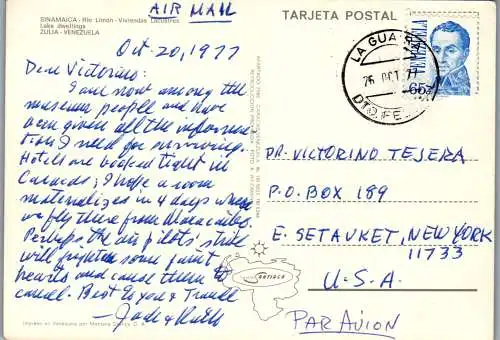 SINAMAICA - Río Limón - Viviendas Lacustres
Lake dwellings
ZULIA - VENEZUELA
AIR MAIL
TARJETA POSTAL
Oct. 20, 1977
Dear Victorino:
I are now among the
museum people and have
been given all the informa-
tion I need for revising.
Hotels are booked tight in
Caracas; I hope a room
materializes in 4 days when
we fly there from Maracaibo.
Perhaps the air pilots strike
will frighten some faint
hearts and cause them to
cancel. Best to you &
Jade & Ruth
LA GUAIRA
26 OCT 77
DTO. FE
VENEZUELA
65
DR. VICTORINO TEJERA
P.O. BOX 189
E. SETAUKET, NEW YORK
11733
U.S.A.
PAR AVION
Impreso en Venezuela por